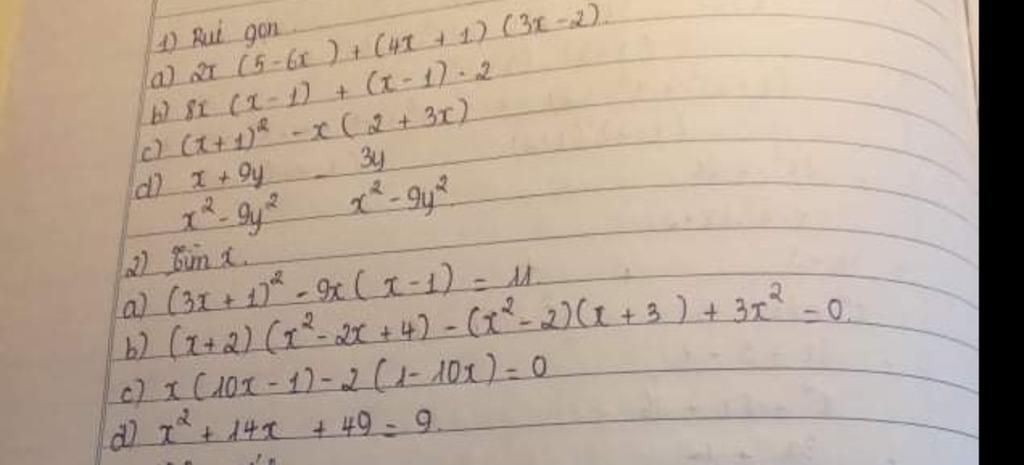 1) Rui gọn.
a) 2x (5-6x) + (4x + 1) (3x - 2).
b) 8x (x - 1) + (x - 1) . 2
c) (x+1)² - x ( 2 + 3x)
d) x + 9y - 3y
x² - 9y² x² - 9y²
2) Tìm x.
a) (3x + 1)² - 9x ( x - 1) = 11.
b) (x+2) (x² - 2x + 4) - (x² - 2)(x + 3) + 3x² = 0.
c) x (10x - 1) - 2 (1 - 10x) = 0
d) x² + 14x + 49 = 9.